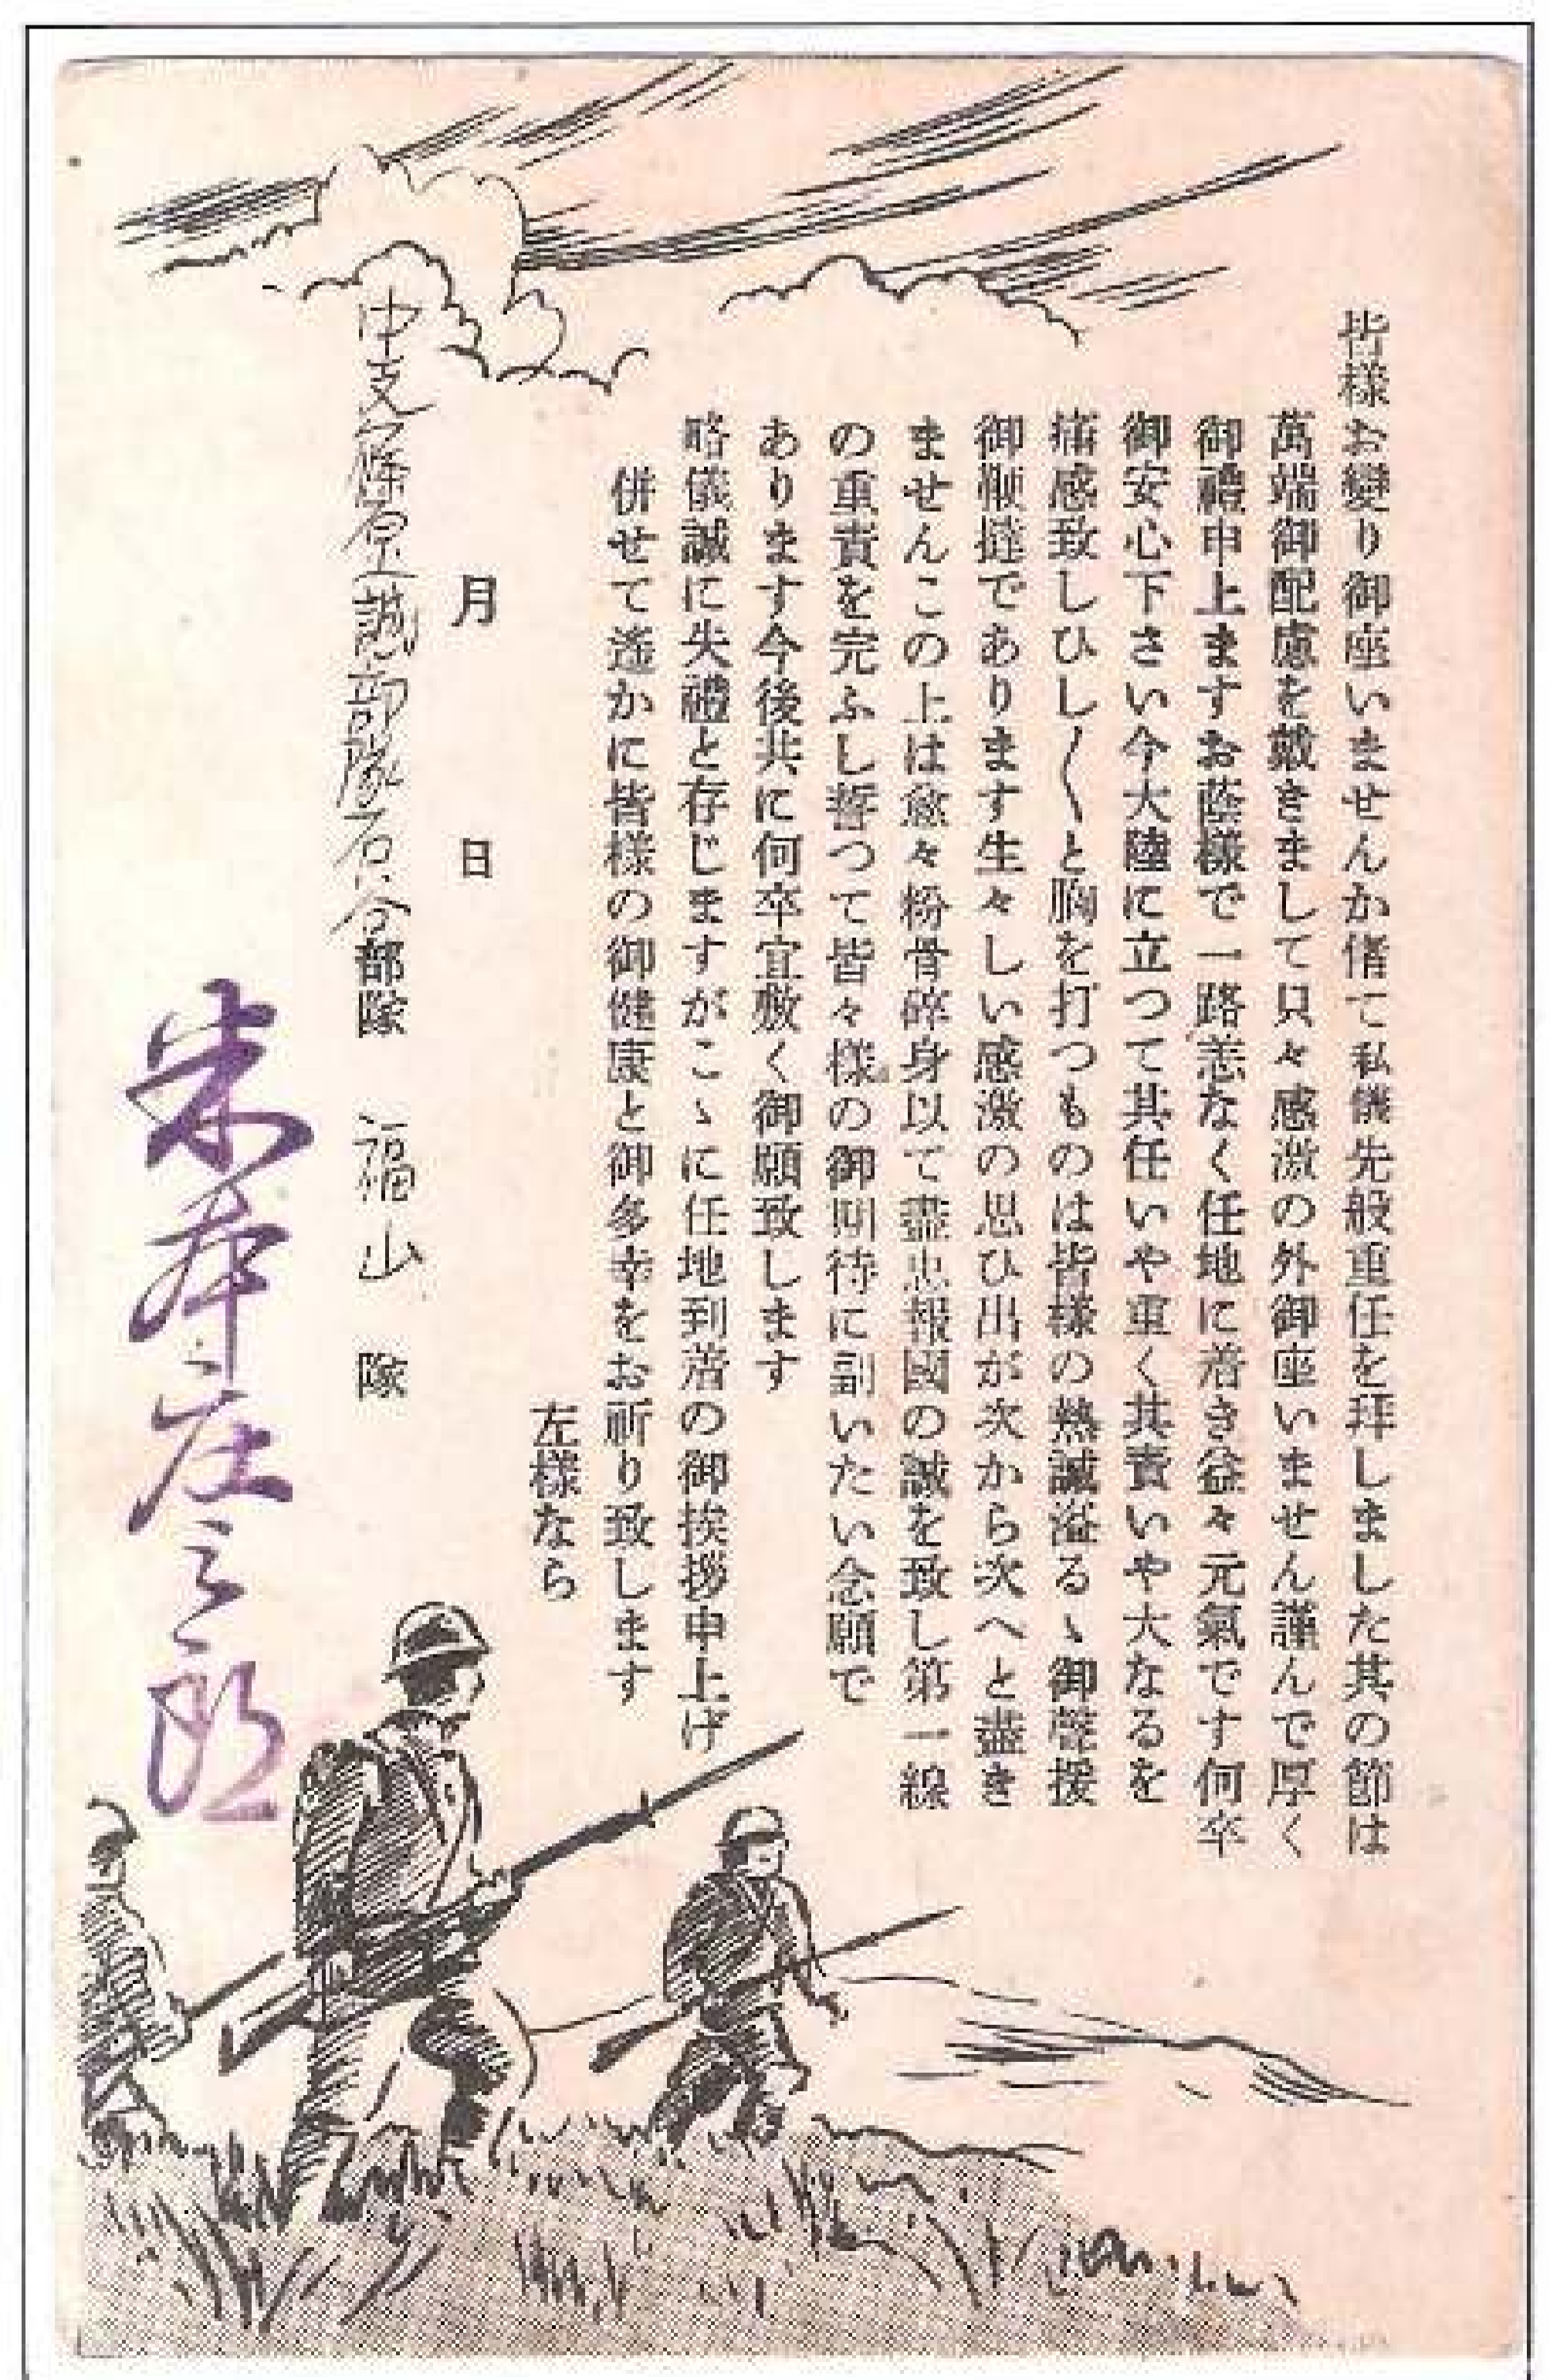 皆様お變り御座いませんか偖て私儀先般重任を拜しました其の節は
萬端御配慮を戴きまして只々感激の外御座いません謹んで厚く
御禮申上ますお蔭様で一路恙なく任地に着き益々元氣です何卒
御安心下さい今大陸に立つて其任いや重く其責いや大なるを
痛感致しひし〱と胸を打つものは皆様の熱誠溢るゝ御聲援
御鞭撻であります生々しい感激の思ひ出が次から次へと盡き
ませんこの上は愈々粉骨碎身以て盡忠報國の誠を致し第一線
の重責を完ふし誓つて皆々様の御期待に副いたい念願で
あります今後共に何卒宜敷く御願致します
略儀誠に失禮と存じますがこゝに任地到着の御挨拶申上げ
併せて遙かに皆様の御健康と御多幸をお祈り致します
左様なら
月 日
中支篠原上誠部隊石谷部隊 福山隊
庄之郎